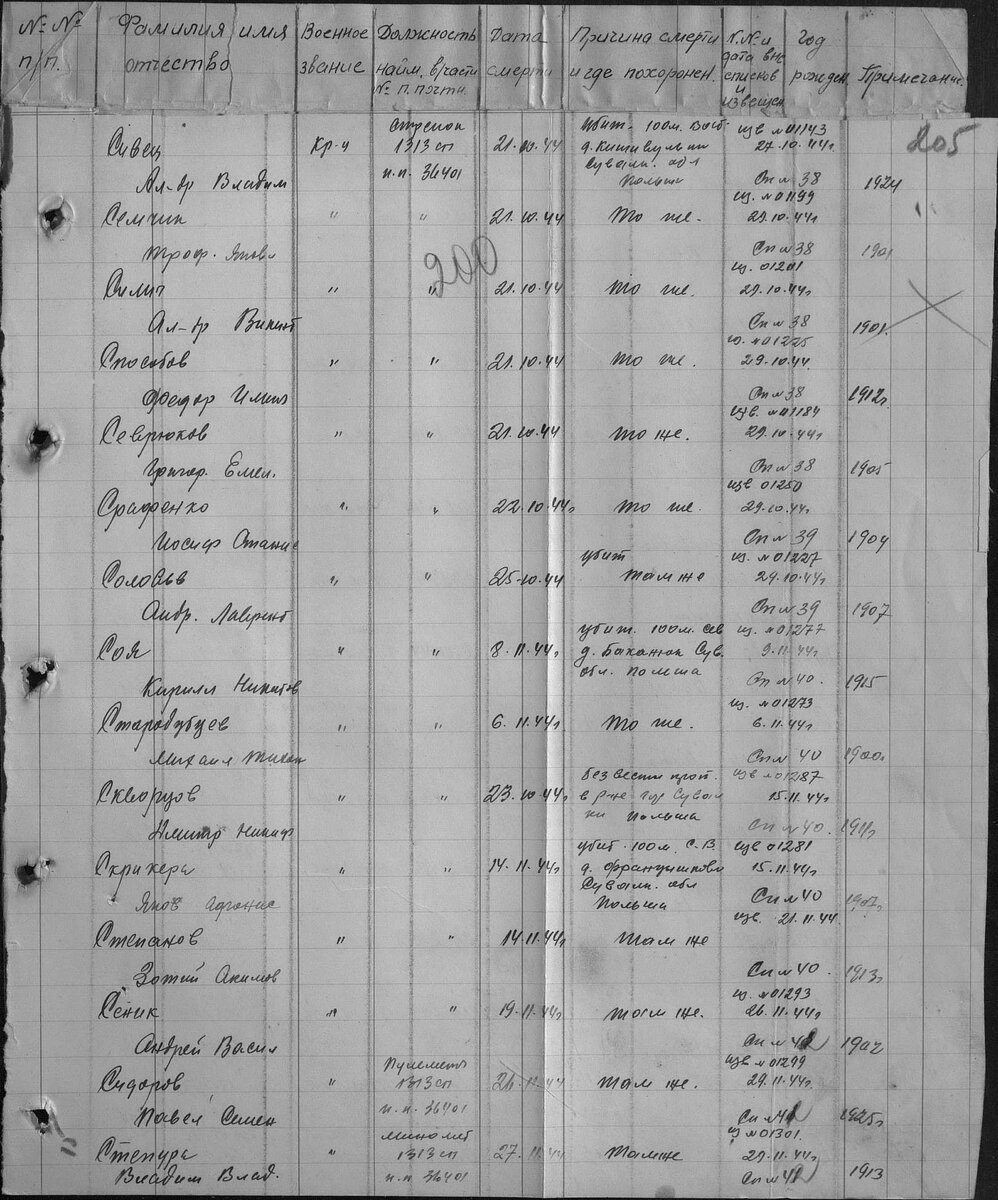 № № п/п. Фамилия имя отчество Военное звание Должность найм. в/части № п. почты Дата смерти Причина смерти и где похоронен. №№ и дата вне списков и извещен Год рожден. Примечание.
205
стрелок убит. 100м. Вост
Сивец кр-ц 1313 сп 21.10.44 изв №01143
п.п. 36401 Сувалк. обл 27.10.44г
Ал-др Владим Польша Сп №38 1924
из. №01199
Семчик " " 21.10.44 То же. 29.10.44г
200
Троф. Яковл Сп №38 1901
из. 01201
Силич " " 21.10.44 То же. 29.10.44г
Ал-др Викент Сп №38 1901.
из. №01225
Способов " " 21.10.44 То же. 29.10.44
Федор Ильич Сп №38 1912г.
изв. №01184
Севрюков " " 21.10.44 То же. 29.10.44г
Григор. Емел. Сп №38 1905
изв 01250
" " 22.10.44г То же. 29.10.44г.
Иосиф Сп №39 1904
убит из. №01227
Соловьв " " 25.10.44 там же 29.10.44г
Андр. Лаврент Сп №39 1907
убит. 100м. сев из. №01277
Соя " " 8.11.44г д. Баканюк Сув. 9.11.44г
обл. Польша
Кирилл Никитов Сп №40. 1915
из. №01273
Стародубцев " " 6.11.44г То же. 6.11.44г
Михаил Тихон Сп №40 1900г
без вести проп. изв №01287
Скворцов " " 23.10.44г в р-не гор Сувал 15.11.44г
ки Польша
Дмитр Никиф Сп №40.
убит 100м. С.В изв 01281
Скрипера " " 14.11.44г д. Францишково 15.11.44г
Сувалк. обл
Яков Афонас Польша Сп №40 1907г
изв. 21.11.44
Степанов " " 14.11.44г там же
Зотий Акимов Сп №40. 1913г
из. №01293
Сеник " " 19.11.44г там же. 26.11.44г
Андрей Васил Сп 1902
пулемет изв №01299
Сидоров " 1313 сп там же. 29.11.44г
Павел Семен п.п. 36401 Сп 1925г
миномет из №01301.
Степура " 1313 сп 27.11.44 там же 29.11.44г
Владим Влад. п.п 36401 Сп 1913